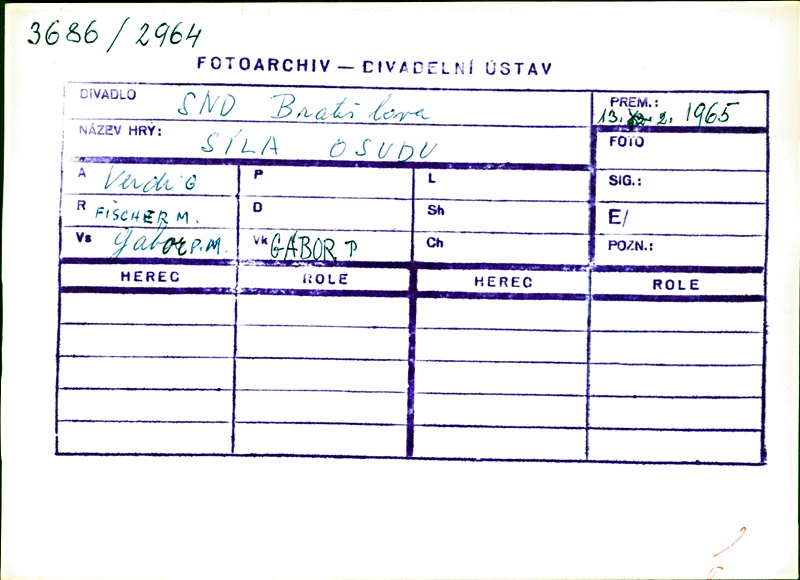 3686/2964
FOTOARCHIV — DIVADELNÍ ÚSTAV
DIVADLO SND Bratislava
PREM.: 13. 2. 1965
NÁZEV HRY: SÍLA OSUDU
FOTO
A Verdi G
P
L
SIG.:
R FISCHER M.
D
Sh
E/
Vs Gábor P.M.
Vk GÁBOR P
Ch
POZN.:
HEREC ROLE HEREC ROLE